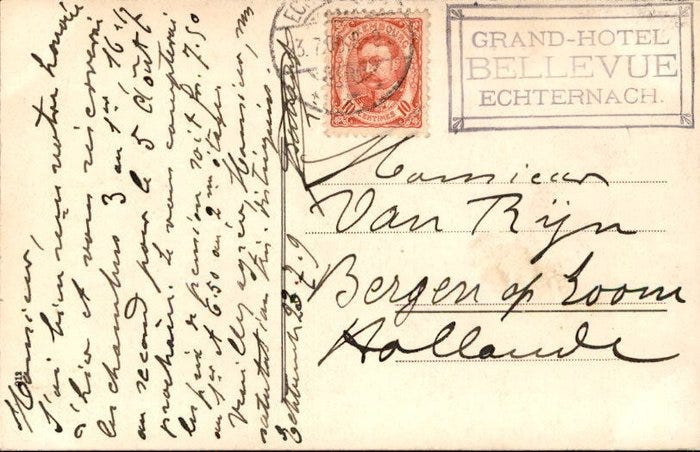 Monsieur,
J'ai bien reçu votre honorée
d'hier et vous réserverai
les chambres 3 au 1er 16 & 17
au second pour le 5 Août
prochain. Je vous compterai
les prix de pension soit fr. 7.50
au 1er et 6.50 au 2me étage
Veuillez agréer, Monsieur, mes
salutations très distinguées
Echternach 23-7-9
GRAND-HOTEL
BELLEVUE
ECHTERNACH.
10 10
CENTIMES
Monsieur
Van Rijn
Bergen op Zoom
Hollande
913